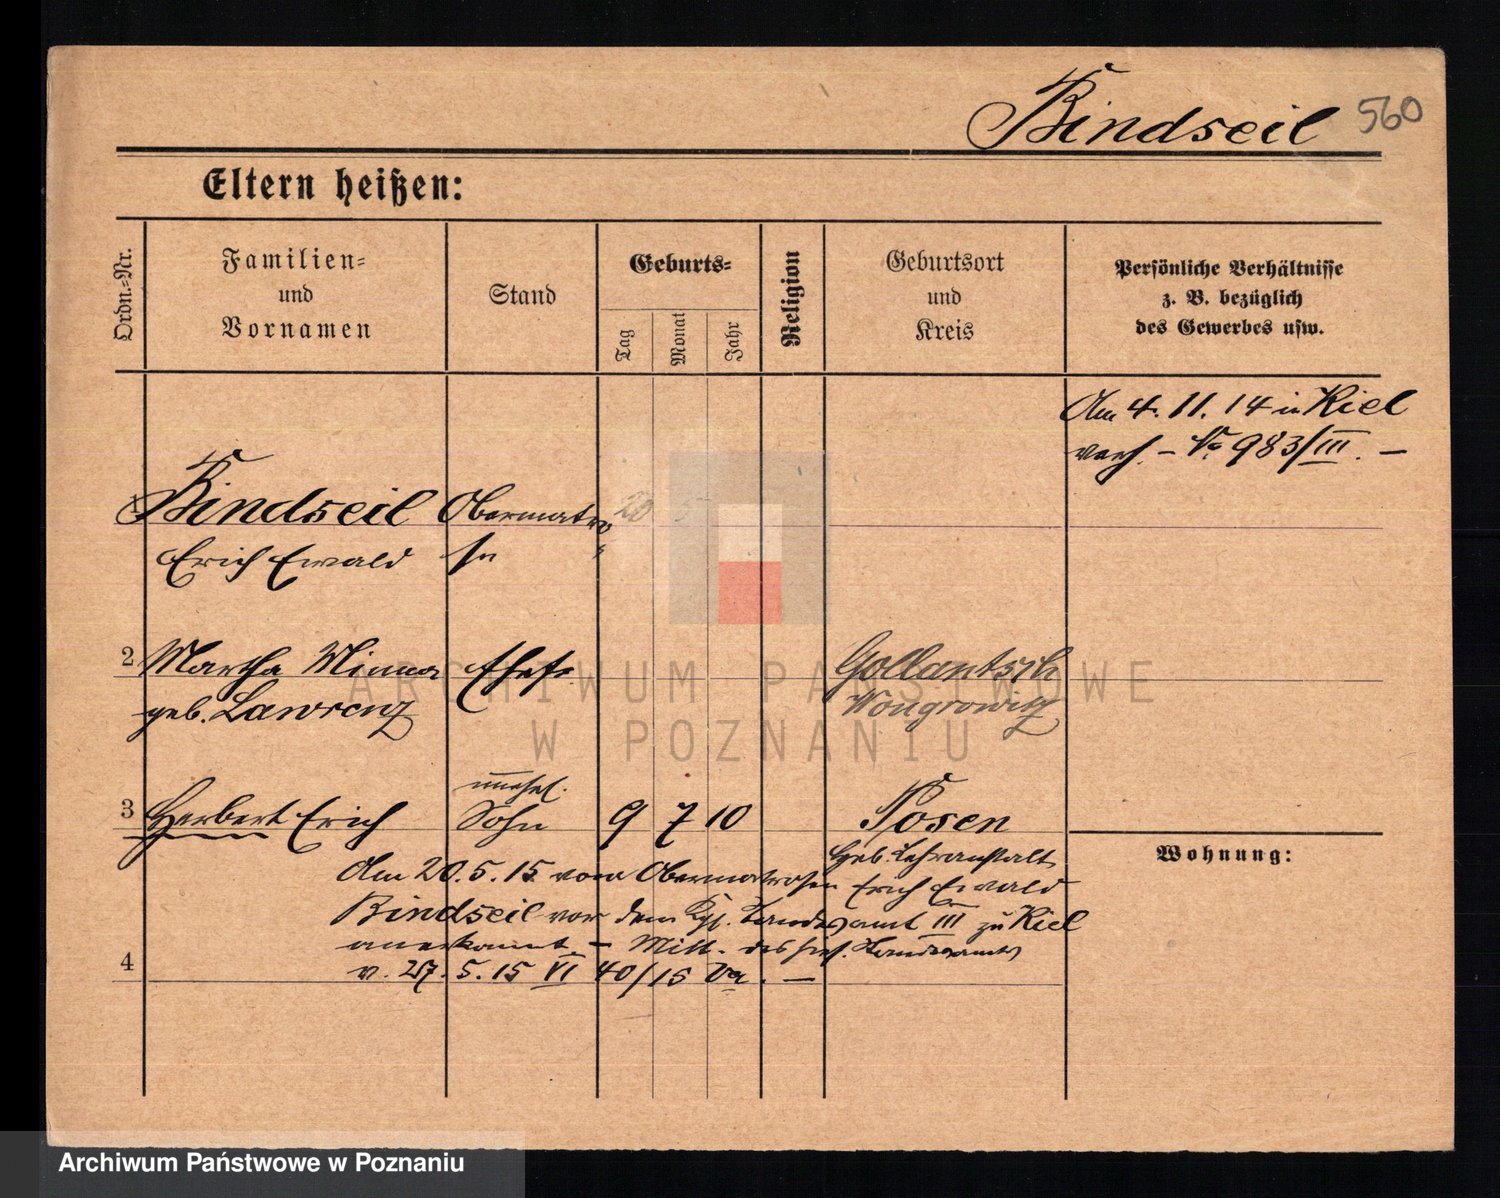 Bindseil 560
Eltern heißen:
Ordn.=Nr.
Familien=
und
Vornamen
Stand
Geburts=
Tag
Monat
Jahr
Religion
Geburtsort
und
Kreis
Persönliche Verhältnisse
z. B. bezüglich
des Gewerbes usw.
Am 4. 11. 14 in Kiel
verh. – No 983/III. –
1 Bindseil Obermatro 20 5
Erich Ewald se
2 Martha Minna Ehefr. Gollantsch
geb. Lawrenz Wongrowitz
unehel.
3 Herbert Erich Sohn 9 7 10 Posen
Heb. Lehranstalt
Am 20. 5. 15 vom Obermatrosen Erich Ewald
Bindseil vor dem Kgl. Standesamt III zu Kiel
anerkannt – Mitt. des Standesamts
4 v. 27. 5. 15 VI 40/15 –
Wohnung:
ARCHIWUM PAŃSTWOWE
W POZNANIU
Archiwum Państwowe w Poznaniu